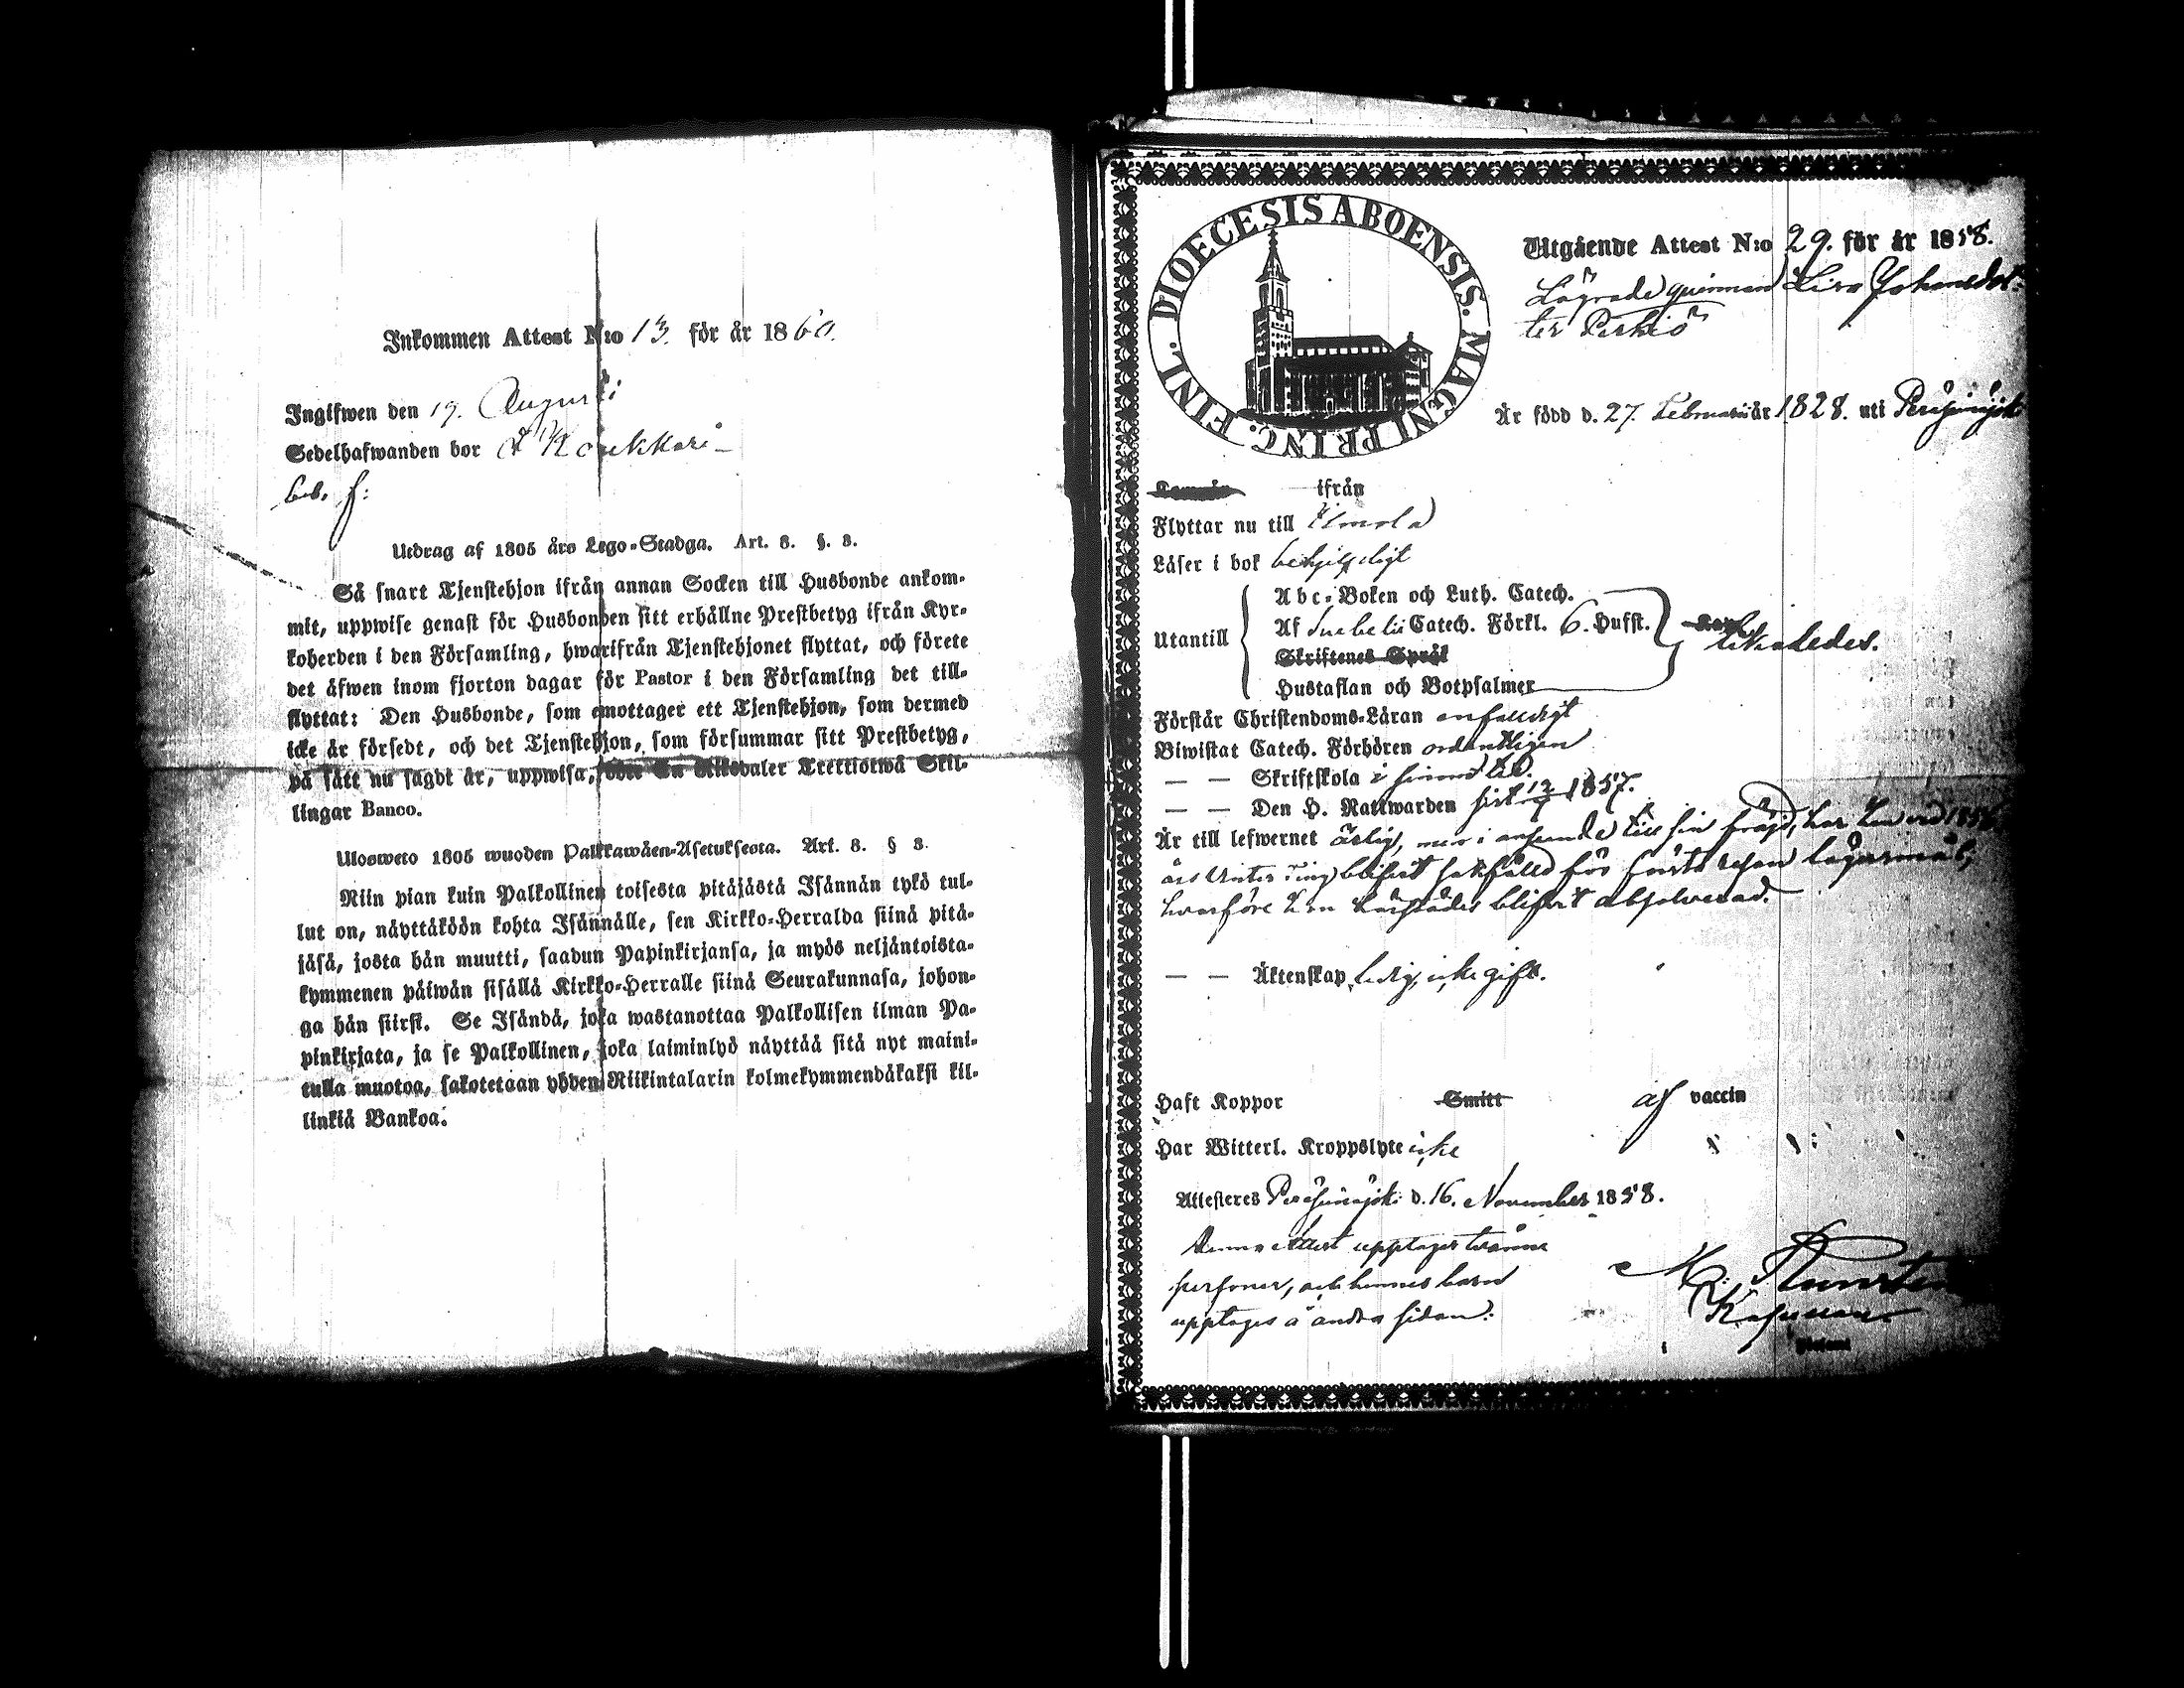 Inkommen Attest N:o 13. för år 1860.
Ingifwen den 19. Augusti
Sedelhafwanden bor
Utdrag af 1805 års Lego-Stadga. Art. 8. §. 3.
Så snart Tjenstehjon ifrån annan Socken till Husbonde ankom-
mit, uppwise genast för Husbonden sitt erhållne Prestbetyg ifrån Kyr-
koherden i den Församling, hwarifrån Tjenstehjonet flyttat, och förete
det äfwen inom fjorton dagar för Pastor i den Församling det till-
flyttat: Den Husbonde, som emottager ett Tjenstehjon, som dermed
icke är försedt, och det Tjenstehjon, som försummar sitt Prestbetyg,
på sätt nu sagdt är, uppwisa, böte En Riksdaler Trettiotwå Skil-
lingar Banco.
Ulosweto 1805 wuoden Palkkawäen-Asetuksesta. Art. 8. § 3.
Niin pian kuin Palkollinen toisesta pitäjästä Isännän tykö tul-
lut on, näyttäköön kohta Isännälle, sen Kirkko-Herralda siinä pitä-
jäsä, josta hän muutti, saadun Papinkirjansa, ja myös neljäntoista-
kymmenen päiwän sisällä Kirkko-Herralle siinä Seurakunnasa, johon-
ga hän siirst. Se Isändä, joka wastanottaa Palkollisen ilman Pa-
pinkirjata, ja se Palkollinen, joka laiminlyö näyttää sitä nyt maini-
tulla muotoa, sakotetaan yhden Riikintalarin kolmekymmendäkaksi kil-
linkiä Bankoa.
DIOECESIS ABOENSIS. MAGNI PRINC. FINL.
Utgående Attest N:o 29. för år 1858.
Lägrade qvinnan Lisa Johansdot-
ter Perkiö
Är född d. 27. Februarii år 1828. uti Peräseinäjok
ifrån
Flyttar nu till Ilmola
Läser i bok behjelpligt
Abc-Boken och Luth. Catech.
Utantill Af Svebelii Catech. Förkl. 6. Hufst. likaledes.
Skriftenes Språk
Hustaflan och Botpsalmer
Förstår Christendoms-Läran enfaldigt
Biwistat Catech. Förhören ordentligen
— — Skriftskola i sinom tid.
— — Den H. Nattwarden sist 1857.
Är till lefwernet ärlig, men i anseende till sin fräjd, har hon vid 1856
års Vinter Ting blifvit sakfälld för första resan lägersmål,
hvarföre hon härstädes blifvit absolverad.
— — Äktenskap ledig, icke gift.
Haft Koppor Smitt af vaccin
Har Witterl. Kroppslyte icke
Attesteres Peräseinäjok: d. 16. November 1858.
Denna attest upptager tvänne
personer, och hennes barn
upptages å andra sidan.